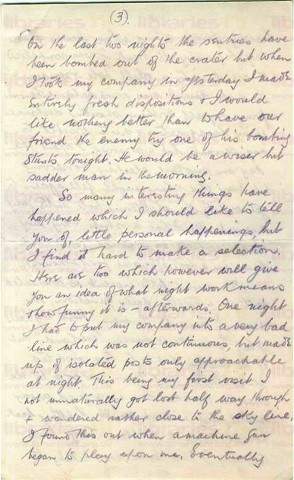 (3).
"On the last two nights the sentries have
been bombed out of the crater but when
I took my company in yesterday I made
entirely fresh dispositions & I would
like nothing better than to have our
friend the enemy try one of his bombing
stunts tonight. He would be a wiser but
sadder man in the morning.
So many interesting things have
happened which I should like to tell
you of, little personal happenings, but
I find it hard to make a selection.
Here are two which however will give
you an idea of what night work means
& how funny it is – afterwards. One night
I had to put my company into a very bad
line which was not continuous, but made
up of isolated posts only approachable
at night. This being my first visit I
not unnaturally got lost half way through
& wandered rather close to the sky line.
I found this out when a machine gun
began to play upon me. Eventually